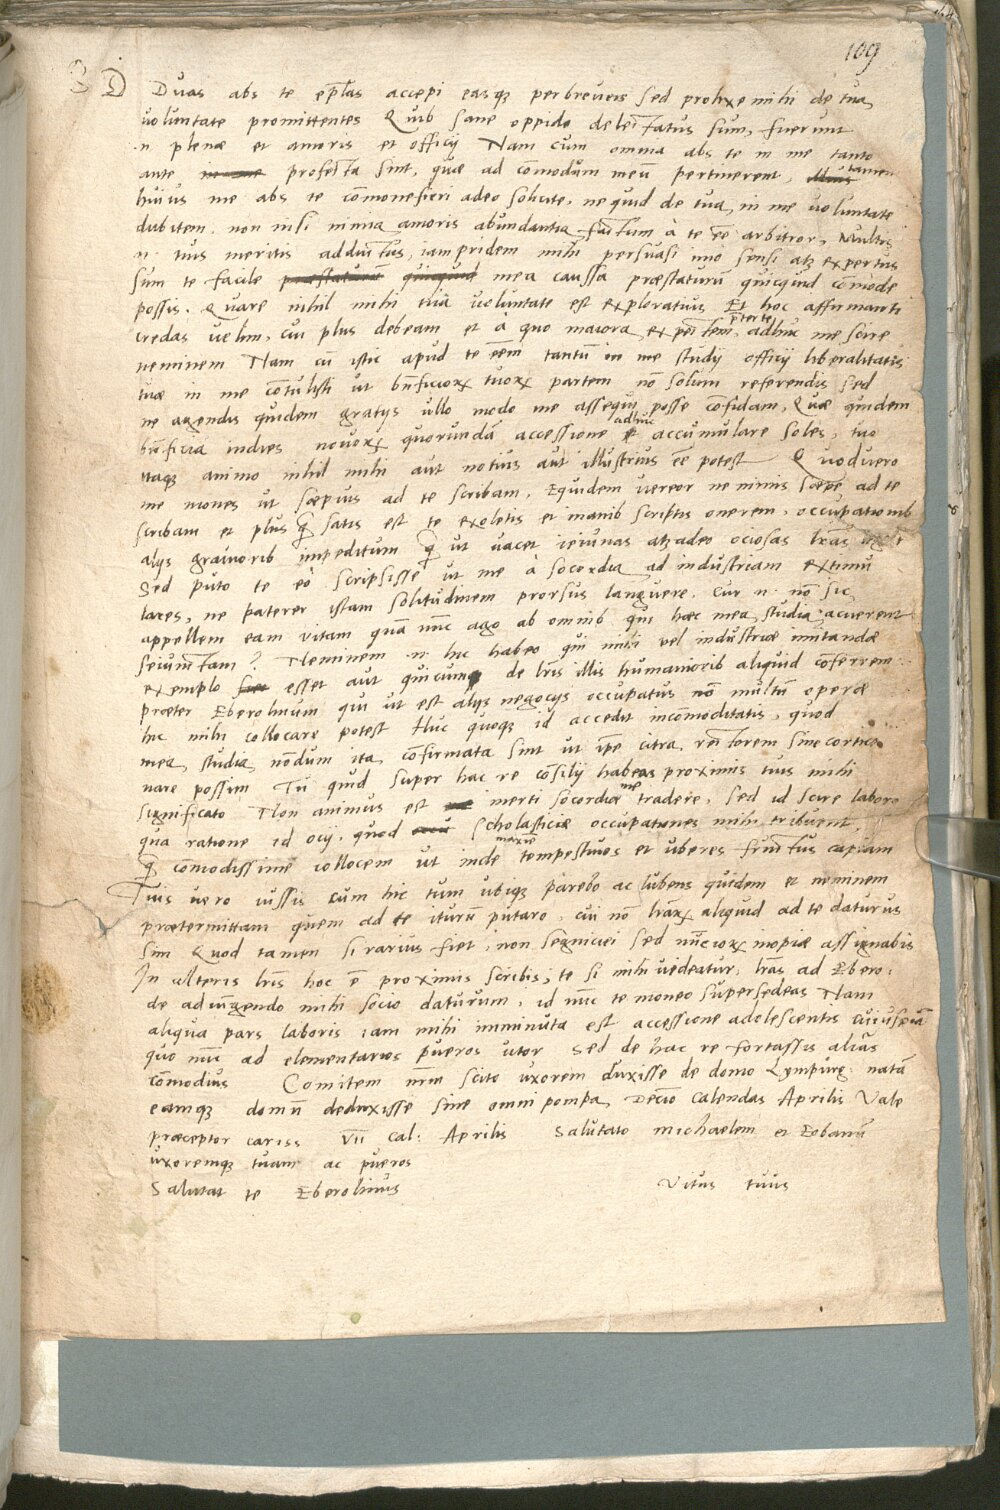 109
S D Duas abs te eplas accepi easq; perbreueis sed prolixe mihi de tua
voluntate promittentes Quib sane oppido delectatus sum, fuerunt
.n. plenæ et amoris et officij Nam cum omnia abs te in me tanto
ante profecta sint, quæ ad cōmodum meū pertinerent, tamen
huius me abs te cōmonefieri adeo solicite, ne quid de tua in me voluntate
dubitem. non nisi nimia amoris abundantia factum à te eē arbitror, Multis
.n. tuis meritis adductus, iampridem mihi persuasi imo sensi atq; expertus
sum te facile præstaturū quicquid mea caussa præstaturū quicquid cōmode
possis. Quare nihil mihi tua voluntate est exploratius Et hoc affirmanti
credas uelim, cui plus debeam et à quo maiora expectem, præterte adhuc me scire
neminem Nam cū istic apud te eēm tantū in me studij officij liberalitatis
tuæ in me cōtulisti ut bnficiorꝝ tuorꝝ partem nō solum referendis sed
ne agendis quidem gratijs ullo modo me assequi posse confidam, Quæ quidem
bnficia indies nouorꝝ quorundā accessione adhuc accumulare soles, tuo
itaq; animo nihil mihi aut notius aut illustrius eē potest Quoduero
me mones ut sæpius ad te scribam, Equidem uereor ne nimis sæpe ad te
scribam et plus q̄ satis est te exoletis et inanib scriptis onerem, occupationib
alijs grauiorib impeditum q̄ ut vacet ieiunas atq;adeo ociosas lrās
Sed puto te eò scripsisse ut me à socordia ad industriam extimu
lares, ne paterer istam solitudinem prorsus languere. Cur .n. nō sic
appellem eam vitam quā nūc ago ab omnib qui hæc mea studia acuerent
seiunctam? Neminem .n. hic habeo qui mihi vel industriæ imitandæ
exemplo esset aut quicunq; de lris illis humaniorib aliquid cōferrem
præter Eberolinum qui ut est alijs negocijs occupatus nō multū operæ
hic mihi collocare potest Huc quoq; id accedit incōmoditatis, quod
mea studia nōdum ita cōfirmata sint ut ipē citra rectorem sine cortice
nare possim Tu quid super hac re cōsilij habeas proximis tuis mihi
significato Non animus est inerti socordiæ me tradere, sed id scire laboro
qua ratione id ocij, quod scholasticæ occupationes mihi tribuent,
q̄ cōmodissime collocem ut inde maxīe tempestiuos et uberes fructus capiam
Tuis uero iussis cum hic tum ubiq; parebo ac lubens quidem et neminem
prætermittam quem ad te iturū putaro, cui nō lrārꝝ aliquid ad te daturus
sim Quod tamen si rarius fiet, non segniciei sed nūciorꝝ inopiæ assignabis
In alteris lris hoc ē proximis scribis, te si mihi uideatur, lrās ad Ebero:
de adiungendo mihi socio daturum, id nūc te moneo supersedeas Nam
aliqua pars laboris iam mihi imminuta est accessione adolescentis cuiusdā
quo nūc ad elementarios pueros utor Sed de hac re fortassis aliās
cōmodius Comitem nrm scito uxorem duxisse de domo Lympurg: natā
eamq; domū deduxisse sine omni pompa Decīo Calendas Aprilis Vale
præceptor cariss VII Cal: Aprilis Salutato michaelem et Eobanū
uxoremq; tuam ac pueros
Salutat te Eberolinus Vitus tuus